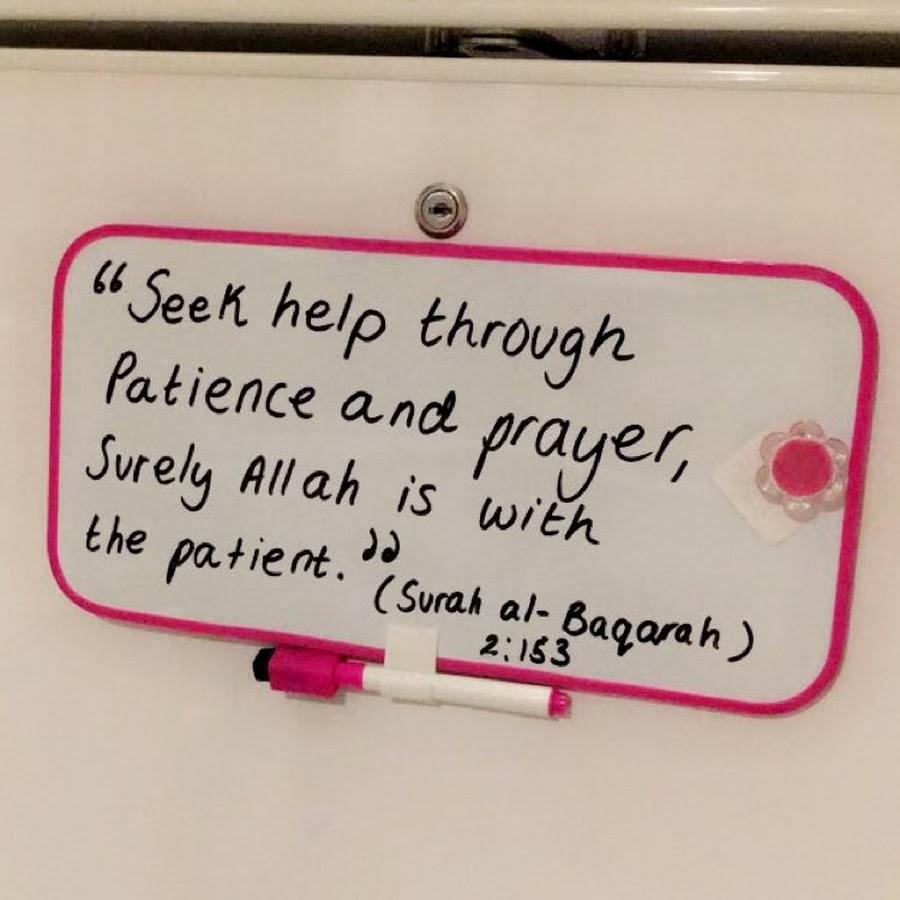 “Seek help through
Patience and prayer,
Surely Allah is with
the patient.”
(Surah al-Baqarah)
2:153